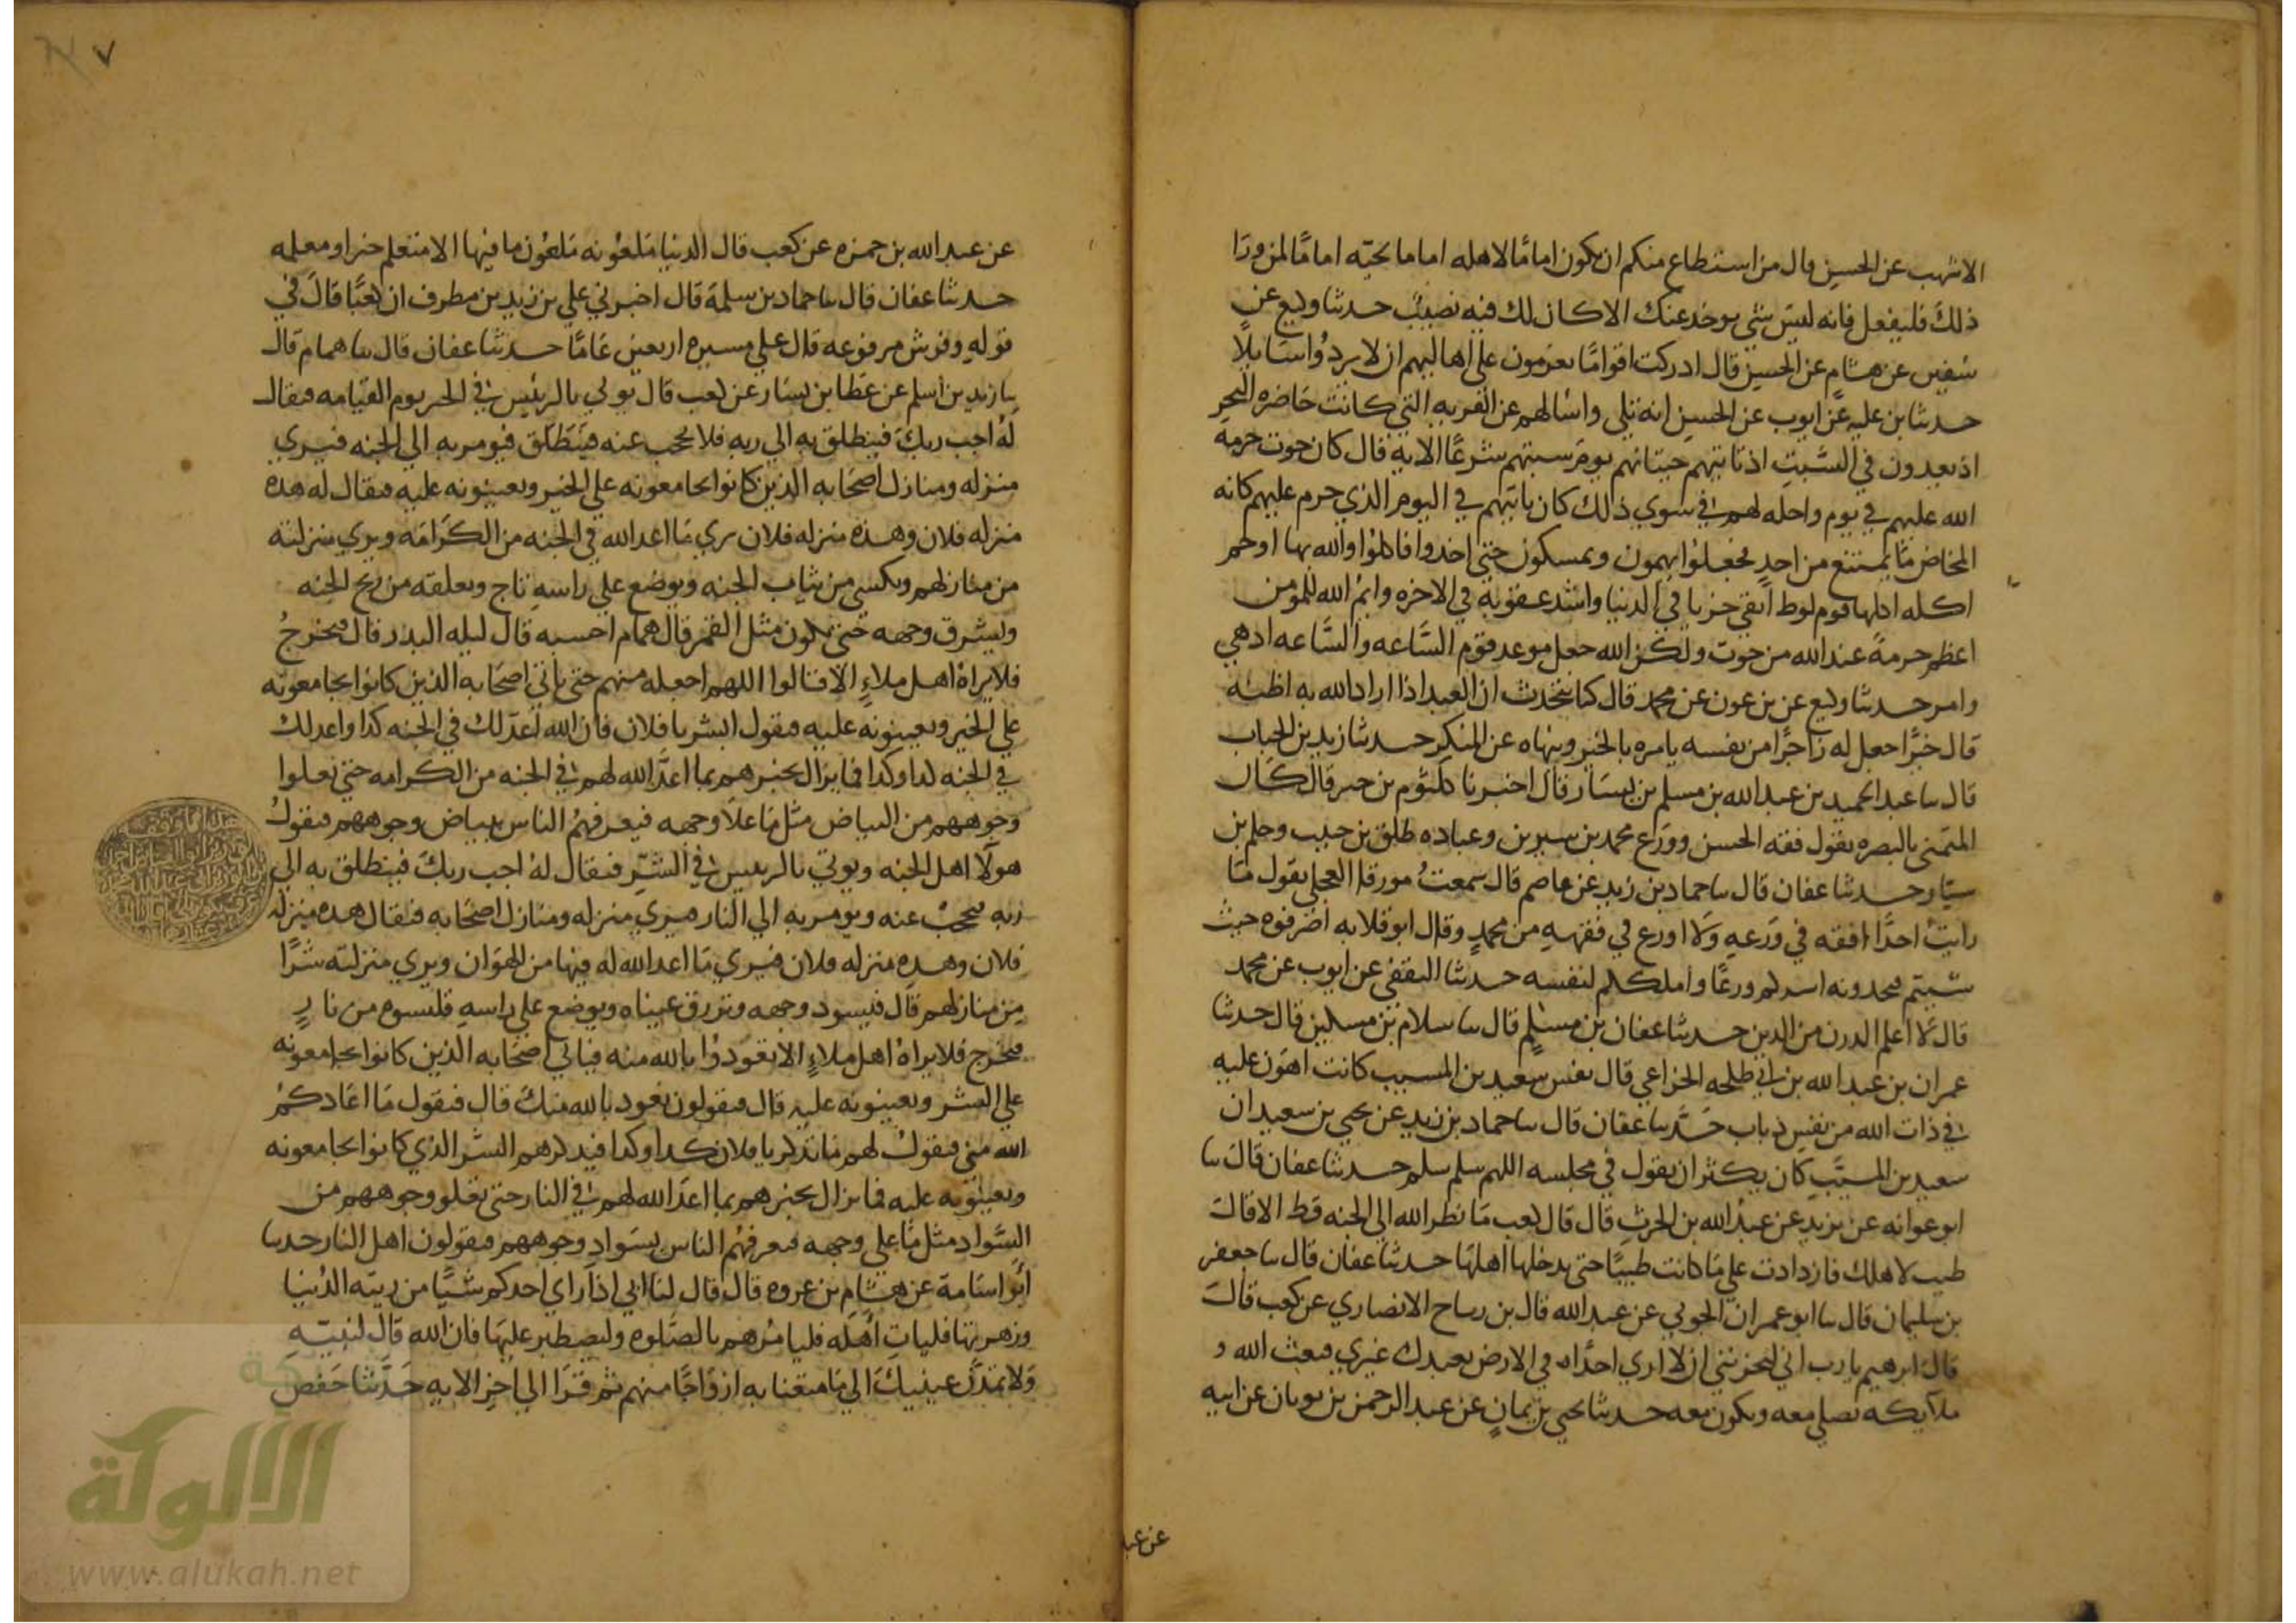 الاشهب عن الحسن قال من استطاع منكم ان يكون اماما لاهله اماما لحيه اماما لمن ورا
ذلك فليفعل فانه ليس شي يوخذ عنك الا كان لك فيه نصيب حدثنا وكيع عن
سفين عن هشام عن الحسن قال ادركت اقواما يعزمون على اهاليهم ان لا يردوا سايلا
حدثنا بن عليه عن ايوب عن الحسن انه تلى واسالهم عن القريه التي كانت حاضره البحر
اذ يعدون في السبت اذ تاتيهم حيتانهم يوم سبتهم شرعا الايه قال كان حوت حرمه
الله عليهم في يوم واحله لهم في سوى ذلك كان ياتيهم في اليوم الذي حرم عليهم كانه
المخاض ما يمتنع من احد فجعلوا يهمون ويمسكون حتى اخذوا فاكلوا والله بها اوخم
اكله اكلها قوم لوط ابقى خزيا في الدنيا واشد عقوبة في الاخره وايم الله للمومن
اعظم حرمة عند الله من حوت ولكن الله جعل موعد قوم الساعه والساعه ادهي
وامر حدثنا وكيع عن بن عون عن محمد قال كنا نتحدث ان العبد اذا اراد الله به اظنه
قال خيرا جعل له زاجرا من نفسه يامره بالخير وينهاه عن المنكر حدثنا زيد بن الحباب
قال سا عبد الحميد بن عبد الله بن مسلم بن يسار قال اخبرنا كلثوم بن جبر قال كان
المتمني بالبصره يقول فقه الحسن وورع محمد بن سيرين وعباده طلق بن حبيب وحلم بن
يسار حدثنا عفان قال سا حماد بن زيد عن عاصم قال سمعت مورقا العجلي يقول ما
رايت احدا افقه في ورعه ولا اورع في فقهه من محمد وقال ابو قلابه اصرفوه حيث
شيتم فتجدونه اشدكم ورعا واملككم لنفسه حدثنا الثقفي عن ايوب عن محمد
قال لا اعلم الدرن من الدين حدثنا عفان بن مسلم قال سا سلام بن مسكين قال حدثنا
عمران بن عبد الله بن طلحه الخزاعي قال نفس سعيد بن المسيب كانت اهون عليه
في ذات الله من نفس ذباب حدثنا عفان قال سا حماد بن زيد عن يحيى بن سعيد ان
سعيد بن المسيب كان يكثر ان يقول في مجلسه اللهم سلم سلم حدثنا عفان قال سا
ابو عوانه عن يزيد عن عبد الله بن الحرث قال قال كعب ما نظر الله الى الجنه قط الا قال
طيب لاهلك فازدادت على ما كانت طيبا حتى يدخلها اهلها حدثنا عفان قال سا جعفر
بن سليمان قال سا ابو عمران الجوني عن عبد الله بن رباح الانصاري عن كعب قال
قال ابرهيم يارب اني ليحزنني ان لا ارى احدا في الارض يعبدك غيري فبعث الله
ملايكه تصلي معه وتكون معه حدثنا يحيى بن يمان عن عبد الرحمن بن ثوبان عن ابيه
عن عبد
٧
عن عبد الله بن حمزه عن كعب قال الدنيا ملعونه ملعون ما فيها الا متعلم خير او معلمه
حدثنا عفان قال سا حماد بن سلمة قال اخبرني علي بن زيد بن مطرف ان كعبا قال في
قوله وفرش مرفوعه قال على مسيره اربعين عاما حدثنا عفان قال سا همام قال
سا زيد بن اسلم عن عطا بن يسار عن كعب قال يوتى بالرئيس في الخير يوم القيامه فيقال
له اجب ربك فينطلق به الى ربه فلا يحجب عنه فينطلق فيومر به الى الجنه فيرى
منزله ومنازل اصحابه الذين كانوا يجامعونه على الخير ويعينونه عليه فيقال له هذه
منزله فلان وهذه منزله فلان يرى ما اعد الله في الجنه من الكرامه ويرى منزلته
من منازلهم ويكسى من ثياب الجنه ويوضع على راسه تاج ويعلقه من ريح الجنه
ويشرق وجهه حتى يكون مثل القمر قال همام احسبه قال ليله البدر قال فيخرج
فلا يراه اهل ملاء الا قالوا اللهم اجعله منهم حتى ياتي اصحابه الذين كانوا يجامعونه
على الخير ويعينونه عليه فيقول ابشر يا فلان فان الله اعد لك في الجنه كذا واعد لك
في الجنه كذا وكذا فما يزال يخبرهم بما اعد الله لهم في الجنه من الكرامه حتى يعلوا
وجوههم من البياض مثل ما علا وجهه فيعرفهم الناس ببياض وجوههم فيقول
هولا اهل الجنه ويوتى بالرئيس في الشر فيقال له اجب ربك فينطلق به الى
ربه فيحجب عنه ويومر به الى النار فيرى منزله ومنازل اصحابه فيقال هذه منزله
فلان وهذه منزله فلان فيرى ما اعد الله له فيها من الهوان ويرى منزلته شرا
من منازلهم قال فيسود وجهه وتزرق عيناه ويوضع على راسه قلنسوه من نار
فيخرج فلا يراه اهل ملاء الا تعوذوا بالله منه فياتي اصحابه الذين كانوا يجامعونه
على الشر ويعينونه عليه قال فيقولون نعوذ بالله منك قال فيقول ما اعاذكم
الله مني فيقول لهم ما تذكر يا فلان كذا وكذا فيذكرهم الشر الذي كانوا يجامعونه
ويعينونه عليه فما يزال يخبرهم بما اعد الله لهم في النار حتى يعلو وجوههم من
السواد مثل ما على وجهه فيعرفهم الناس بسواد وجوههم فيقولون اهل النار حدثنا
ابو اسامة عن هشام بن عروه قال قال لنا ابي اذا راى احدكم شيا من زينه الدنيا
وزهرتها فليات اهله فليامرهم بالصلوه وليصطبر عليها فان الله قال لنبيه
ولا تمدن عينيك الى ما متعنا به ازواجا منهم ثم قرا الى اخر الايه حدثنا حفص
الألوكة
www.alukah.net